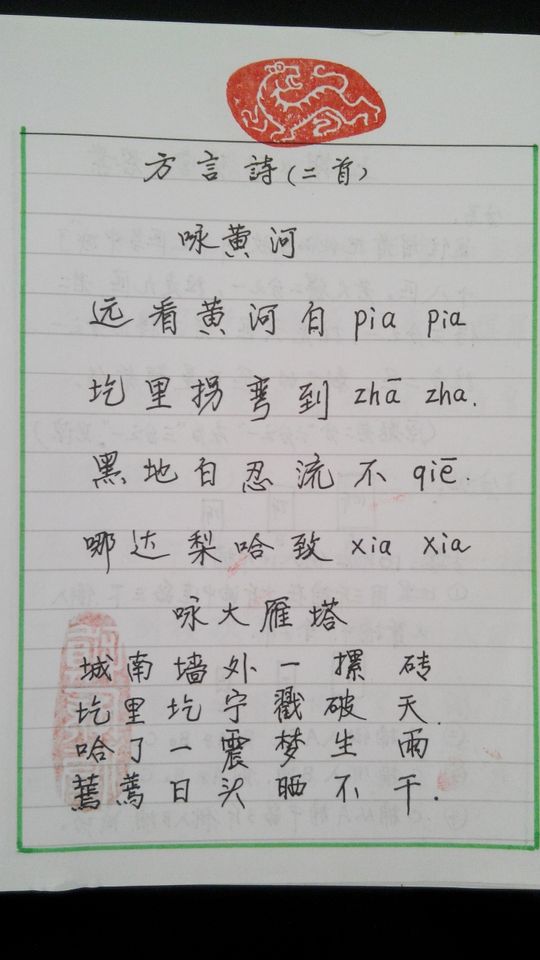 方言詩(二首)
咏黄河
远看黄河白 pia pia
圪里拐弯到 zhā zha.
黑地白忍流不 qiē.
哪达梨哈致 xia xia
咏大雁塔
城南墙外一摞砖
圪里圪宁戳破天.
哈了一震梦生雨
蔫蔫日头晒不干.